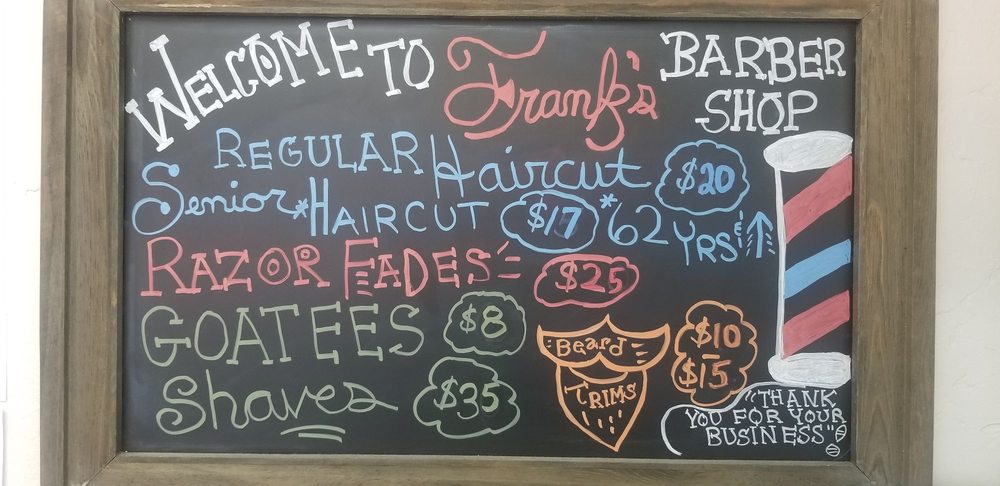 WELCOME TO Frank's BARBER SHOP
REGULAR Haircut $20
Senior *HAIRCUT $17 *62 YRS & ↑
RAZOR FADES $25
GOATEES $8
Shaves $35
Beard TRIMS $10 - $15
"THANK
YOU FOR YOUR
BUSINESS"